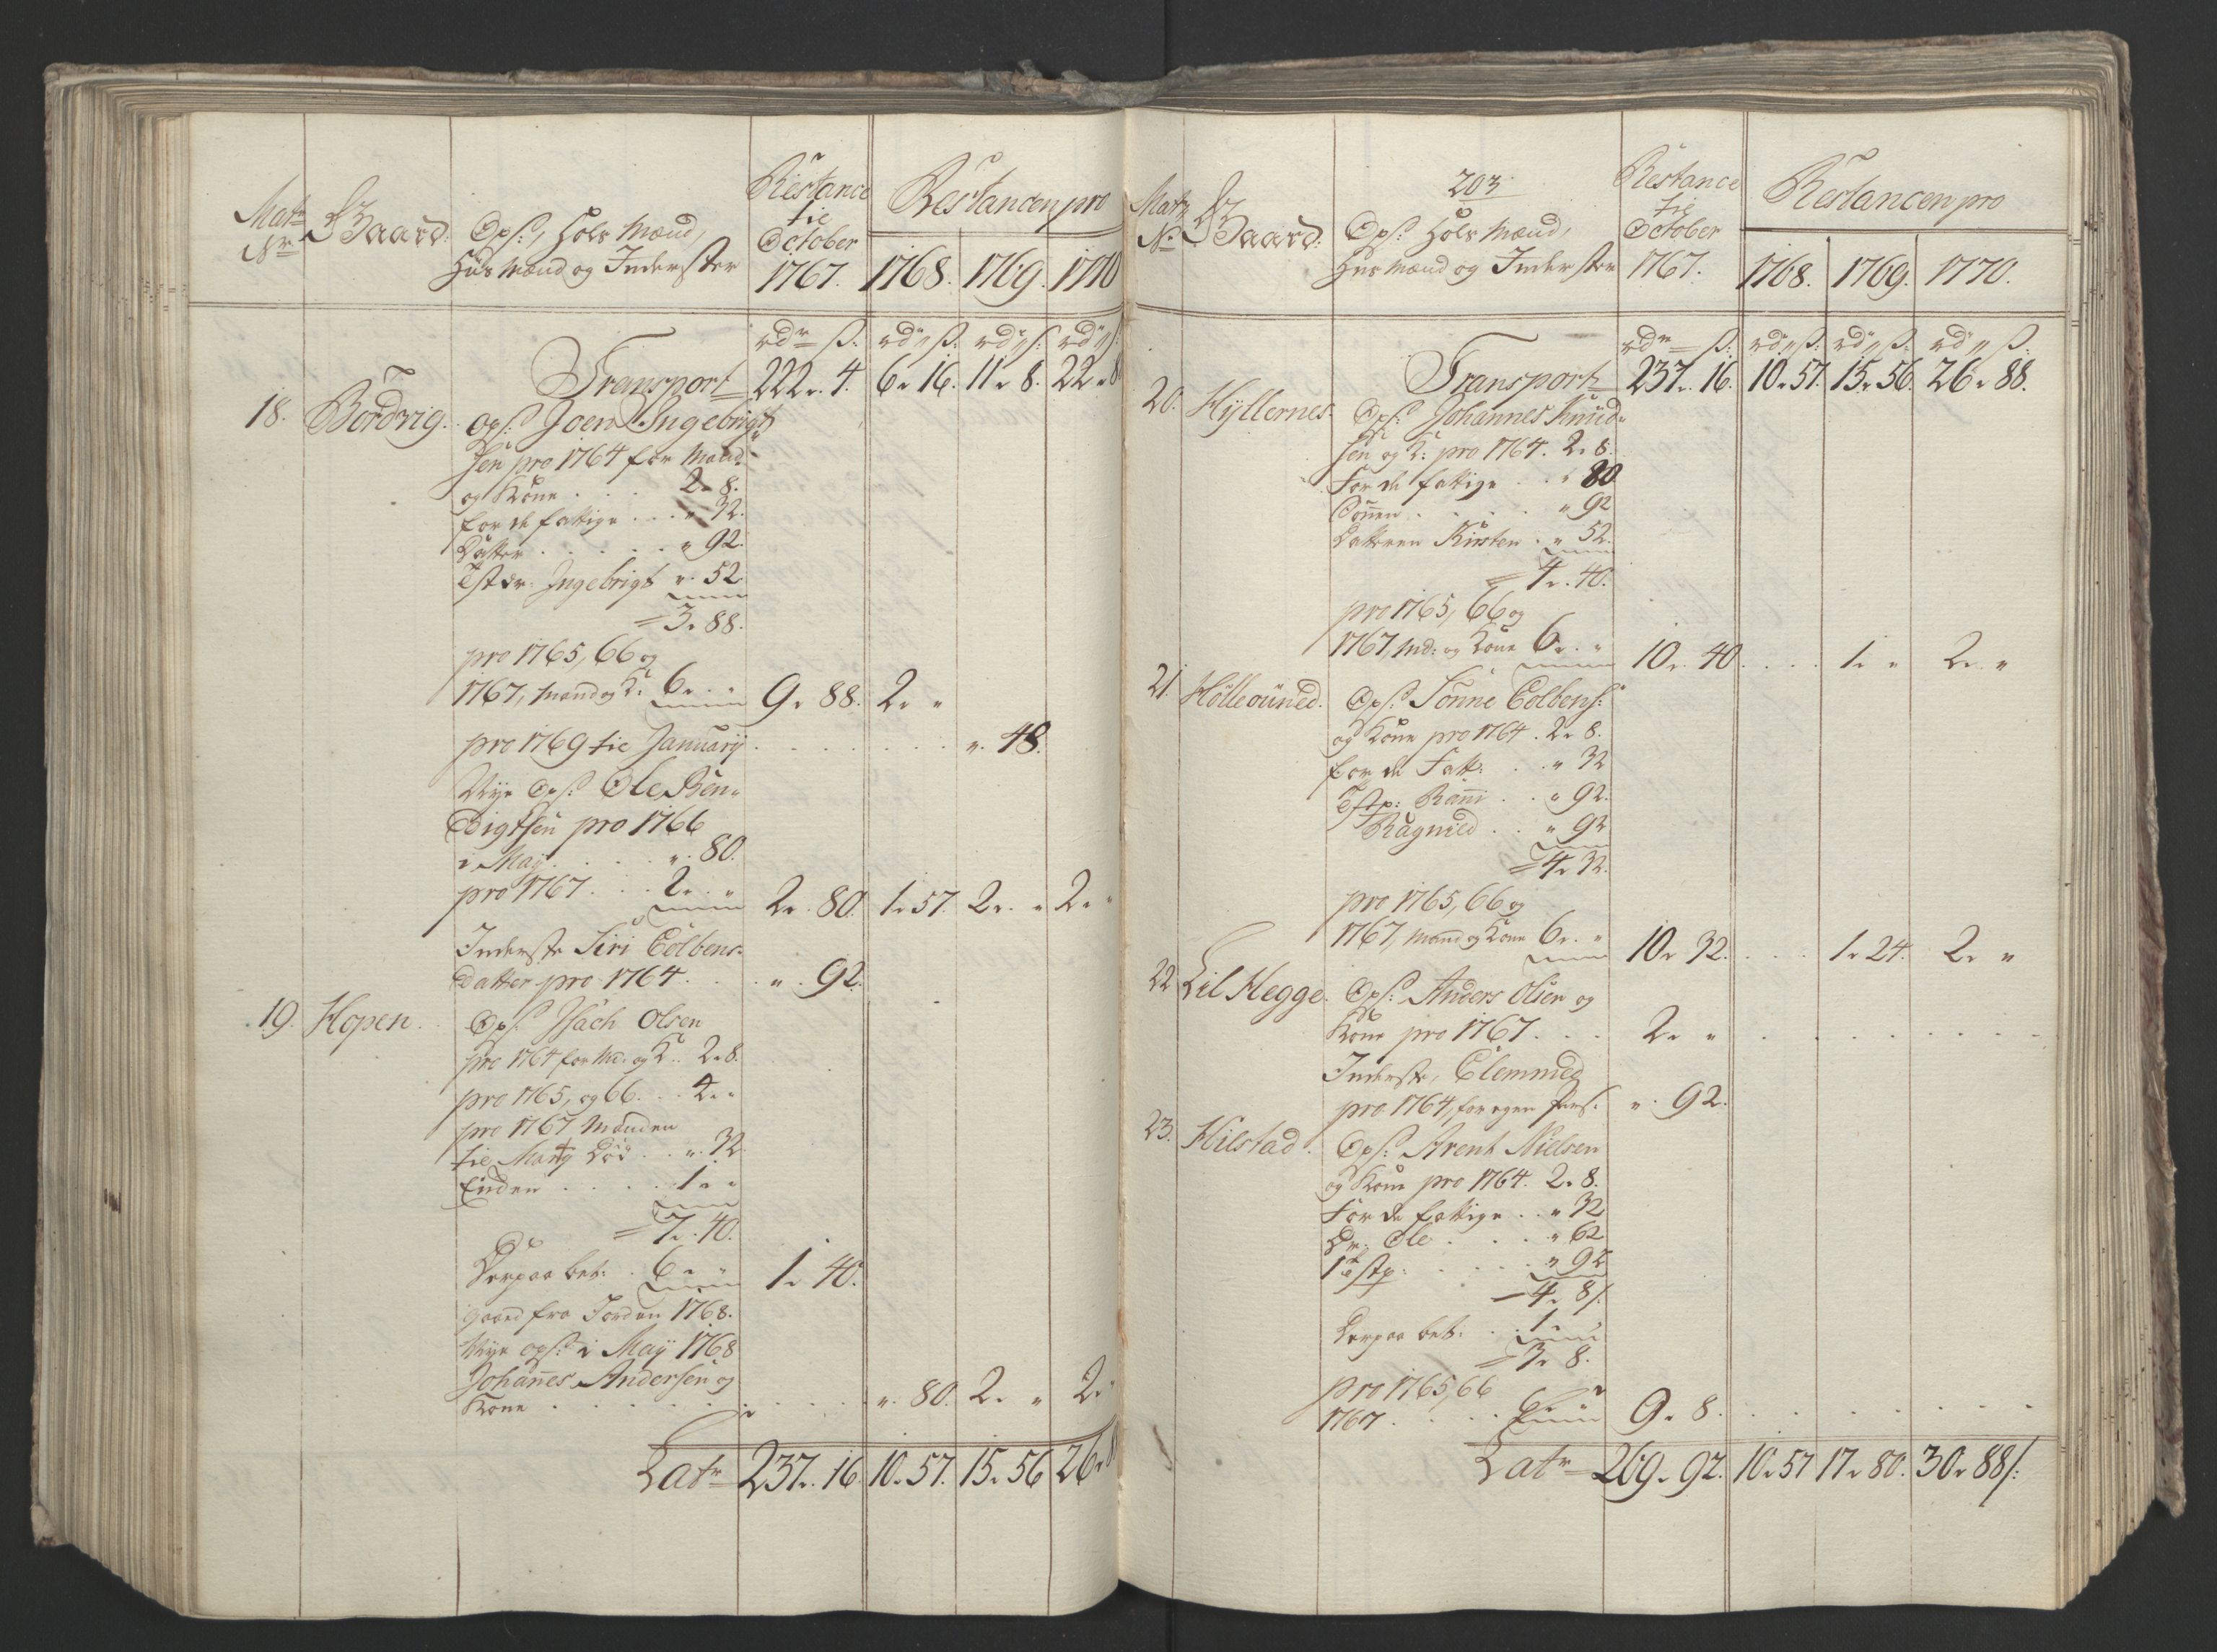 Matr Nr
Gaard.
Ops:, Hols Mænd,
Huus Mænd og Inderster
Restance
til
October
1767.
Restancen pro
1768. 1769. 1770
rdr ß: rd ß: rd ß: rd ß:
Transport 222. 4. 6. 16. 11. 8. 22. 8
18. Bordvig. Ops: Joen Ingebrigt
sen pro 1764 for Mand
og Kone . . . 2. 8.
for de fattige . . . " 32.
Datter . . . . . " 92.
Ingebrigt ". 52.
= 3. 88.
pro 1765, 66 og
1767, Mand og K: 6. " 9. 88. 2. "
pro 1769 til Januarÿ . . . . . . . ". 48.
Nye Ops: Ole Ben-
digtsen pro 1766
i Maÿ . . . . ". 80.
pro 1767 . . . 2. " 2. 80. 1. 57. 2. " 2. "
Inderste Siri Colbens-
datter pro 1764 . . . ". 92.
19. Hopen. Ops: Isach Olsen
pro 1764 for Md: og K: 2. 8.
pro 1765, og 66. . . 4. "
pro 1767 Manden
til Martÿ død . . ". 32.
Enden . . . . . 1. "
= 7. 40.
Derpaa bet: . 6. " 1. 40.
gaaed fra Jorden 1768.
Nye ops: i Maÿ 1768
Johannes Andersen og
Kone . . . . . . . . . ". 80. 2. " 2. "
Latr 237. 16. 10. 57. 15. 56 26. 8
203
Matr Nr
Gaard.
Ops: Hols Mænd,
Huus Mænd og Inderster
Restance
til
October
1767.
Restancen pro
1768. 1769. 1770.
rdr ß: rd ß: rd ß: rd ß:
Transport 237. 16. 10. 57. 15. 56. 26. 88.
20. Hyllernes. Ops: Johannes Knud-
sen og K: pro 1764. 2. 8.
For de fattige . . " 80
Sönen . . . . . " 92
Datteren Kirsten . " 52.
= 4. 40.
pro 1765, 66 og
1767, Md: og Kone 6. " 10. 40 . . . . 1. " 2. "
21. Hölleouned. Ops: Tönne Colbens:
og Kone pro 1764 . 2. 8.
for de Fatt: . . " 32
Rani . . " 92.
Ragnild . . " 92
= 4. 32.
pro 1765, 66 og
1767, Mand og Kone 6. " 10. 32. . . . 1. 24. 2. "
22. Lil Hegge. Ops: Anders Olsen og
Kone pro 1767 . . . 2. " . . . . . . .
Inderste,
pro 1764, for egen Pers: ". 92.
23. Hilstad. Ops: Arent Nielsen
og Kone pro 1764. 2. 8.
For de fattige . . " 32
Dr: Ole . . . . " 62
. . . . . " 92
= 4. 8/.
Derpaa bet: . . 1. "
= 3. 8.
pro 1765, 66
1767 . . . . 6. " 9. 8. . . . . . . .
Latr 269. 92. 10. 57 17. 80. 30. 88/: